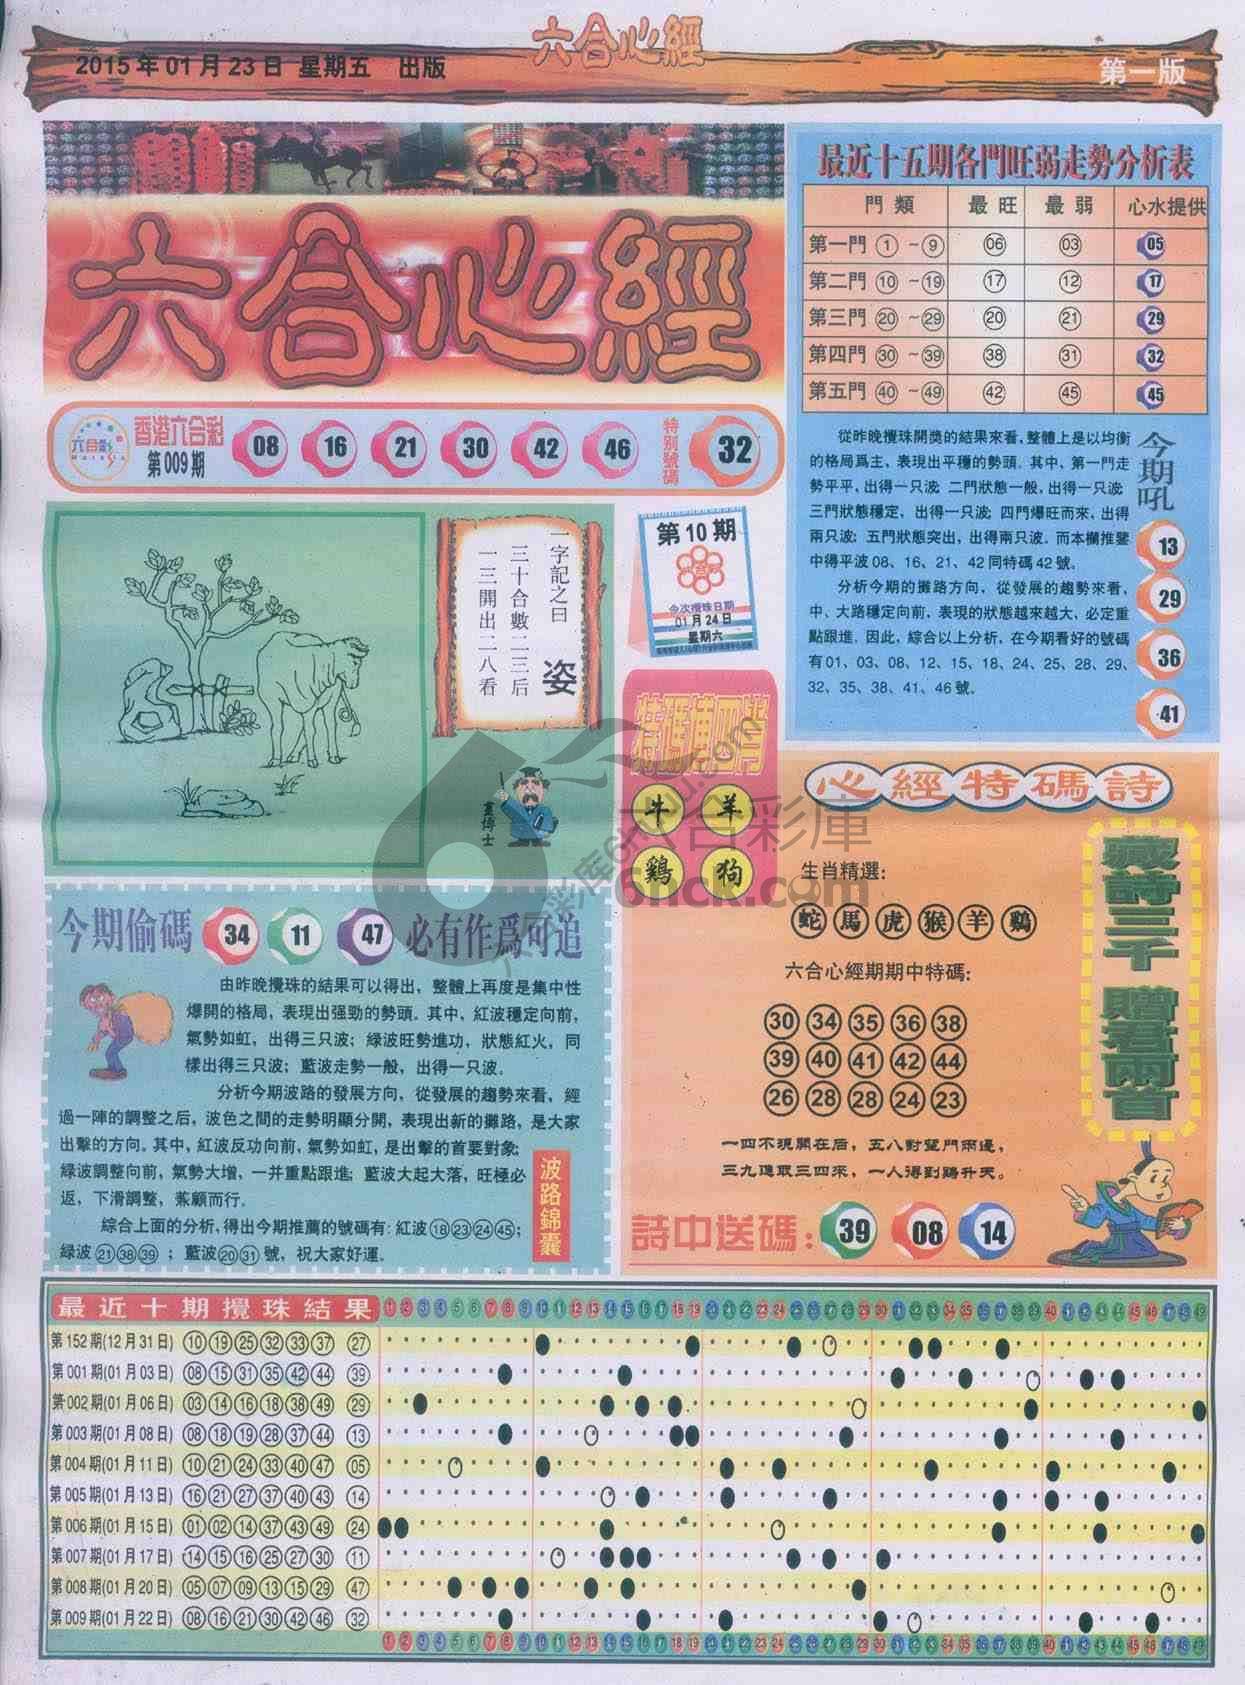 2015年01月23日 星期五 出版
六合心經
第一版
六合心經
香港六合彩
第009期
08 16 21 30 42 46
特別號碼
32
最近十五期各門旺弱走勢分析表
門類 最旺 最弱 心水提供
第一門 ①~⑨ 06 03 05
第二門 ⑩~⑲ 17 12 17
第三門 ⑳~㉙ 20 21 29
第四門 ㉚~㊴ 38 31 32
第五門 ㊵~㊾ 42 45 45
從昨晚攪珠開獎的結果來看,整體上是以均衡
的格局爲主,表現出平穩的勢頭。其中、第一門走
勢平平,出得一只波;二門狀態一般,出得一只波;
三門狀態穩定、出得一只波;四門爆旺而來,出得
兩只波;五門狀態突出,出得兩只波。而本欄推鑒
中得平波08、16、21、42同特碼42號。
分析今期的攤路方向,從發展的趨勢來看,
中、大路穩定向前,表現的狀態越來越大,必定重
點跟進。因此,綜合以上分析,在今期看好的號碼
有01、03、08、12、15、18、24、25、28、29、
32、35、38、41、46號。
今期吼
13
29
36
41
一字記之曰 姿
三十合數二三后
一三開出二八看
畫博士
第10期
今次攪珠日期
01月24日
星期六
特碼博四肖
牛 羊
鷄 狗
心經特碼詩
生肖精選:
蛇 馬 虎 猴 羊 鷄
六合心經期期中特碼:
30 34 35 36 38
39 40 41 42 44
26 28 28 24 23
一四不現開在后,五八對望門兩邊,
三九進取三四來,一人得到鷄升天。
詩中送碼: 39 08 14
藏詩三千 贈君兩首
今期偷碼 34 11 47 必有作爲可追
由昨晚攪珠的結果可以得出,整體上再度是集中性
爆開的格局,表現出强勁的勢頭。其中,紅波穩定向前,
氣勢如虹,出得三只波;綠波旺勢進功,狀態紅火,同
樣出得三只波;藍波走勢一般,出得一只波。
分析今期波路的發展方向,從發展的趨勢來看,經
過一陣的調整之后,波色之間的走勢明顯分開,表現出新的攤路,是大家
出擊的方向。其中,紅波反功向前,氣勢如虹,是出擊的首要對象;
綠波調整向前,氣勢大增,一并重點跟進;藍波大起大落,旺極必
返,下滑調整,兼顧而行。
綜合上面的分析,得出今期推薦的號碼有:紅波⑱㉓㉔㊺;
綠波㉑㊳㊴;藍波⑳㉛號,祝大家好運。
波路錦囊
六合彩庫
6hck.com
最近十期攪珠結果 1 2 3 4 5 6 7 8 9 10 11 12 13 14 15 16 17 18 19 20 21 22 23 24 25 26 27 28 29 30 31 32 33 34 35 36 37 38 39 40 41 42 43 44 45 46 47 48 49
第152期(12月31日) 10 19 25 32 33 37 27
第001期(01月03日) 08 15 31 35 42 44 39
第002期(01月06日) 03 14 16 18 38 49 29
第003期(01月08日) 08 18 19 28 37 44 13
第004期(01月11日) 10 21 24 33 40 47 05
第005期(01月13日) 16 21 27 37 40 43 14
第006期(01月15日) 01 02 14 37 43 49 24
第007期(01月17日) 14 15 16 25 27 30 11
第008期(01月20日) 05 07 09 13 15 29 47
第009期(01月22日) 08 16 21 30 42 46 32
1 2 3 4 5 6 7 8 9 10 11 12 13 14 15 16 17 18 19 20 21 22 23 24 25 26 27 28 29 30 31 32 33 34 35 36 37 38 39 40 41 42 43 44 45 46 47 48 49